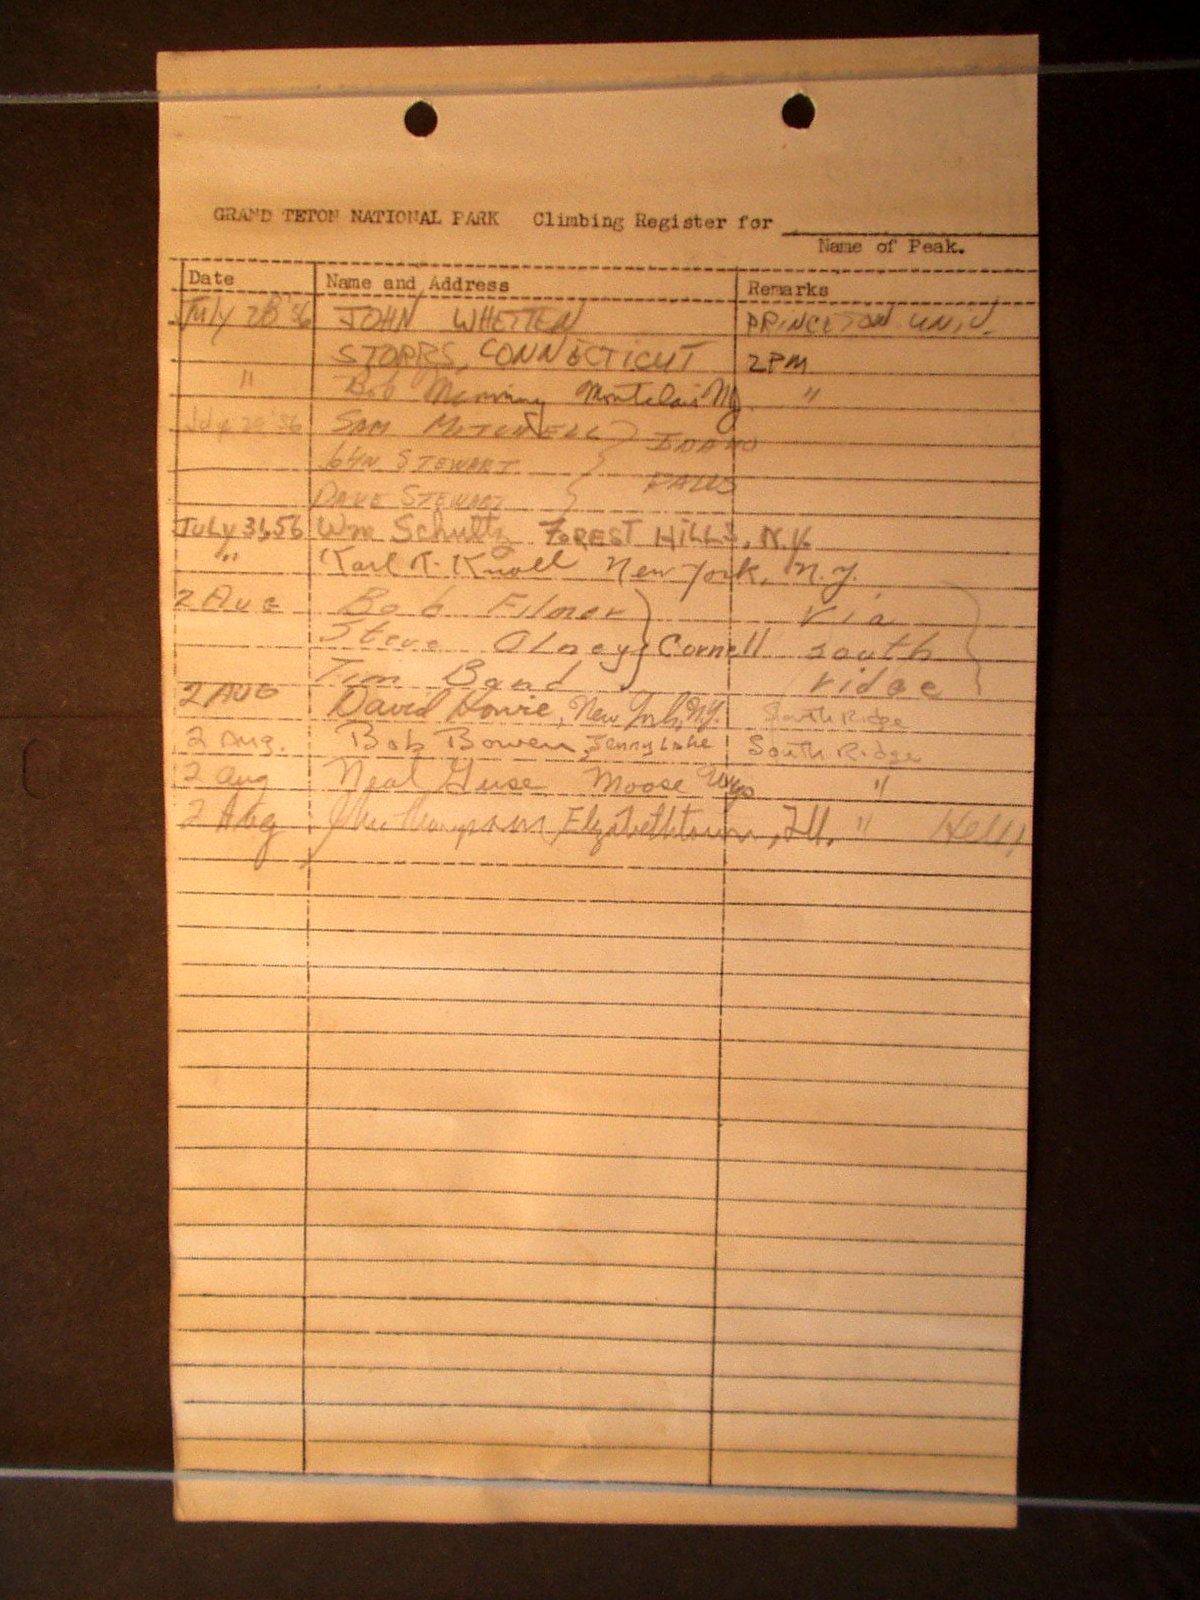 GRAND TETON NATIONAL PARK Climbing Register for
Name of Peak.
Date Name and Address Remarks
July 28 '56 JOHN WHETTEN PRINCETON UNIV.
STORRS, CONNECTICUT 2PM
" Bob Manning Montclair NJ "
SAM IDAHO
STEWART FALLS
DAVE STEWART
JULY 31, 56 Wm Schultz FOREST HILLS, N.Y.
" Karl K. Knoll New York, N.Y.
2 AUG Bob Filner } via
Steve Olney } Cornell south
Tim Band ridge
2 AUG David Bowie, New York, N.Y. South Ridge
2 Aug. Bob Bowen, Jenny Lake South Ridge
2 Aug Neal Guse Moose Wyo "
2 Aug Elizabethtown, Ill. " Hell!